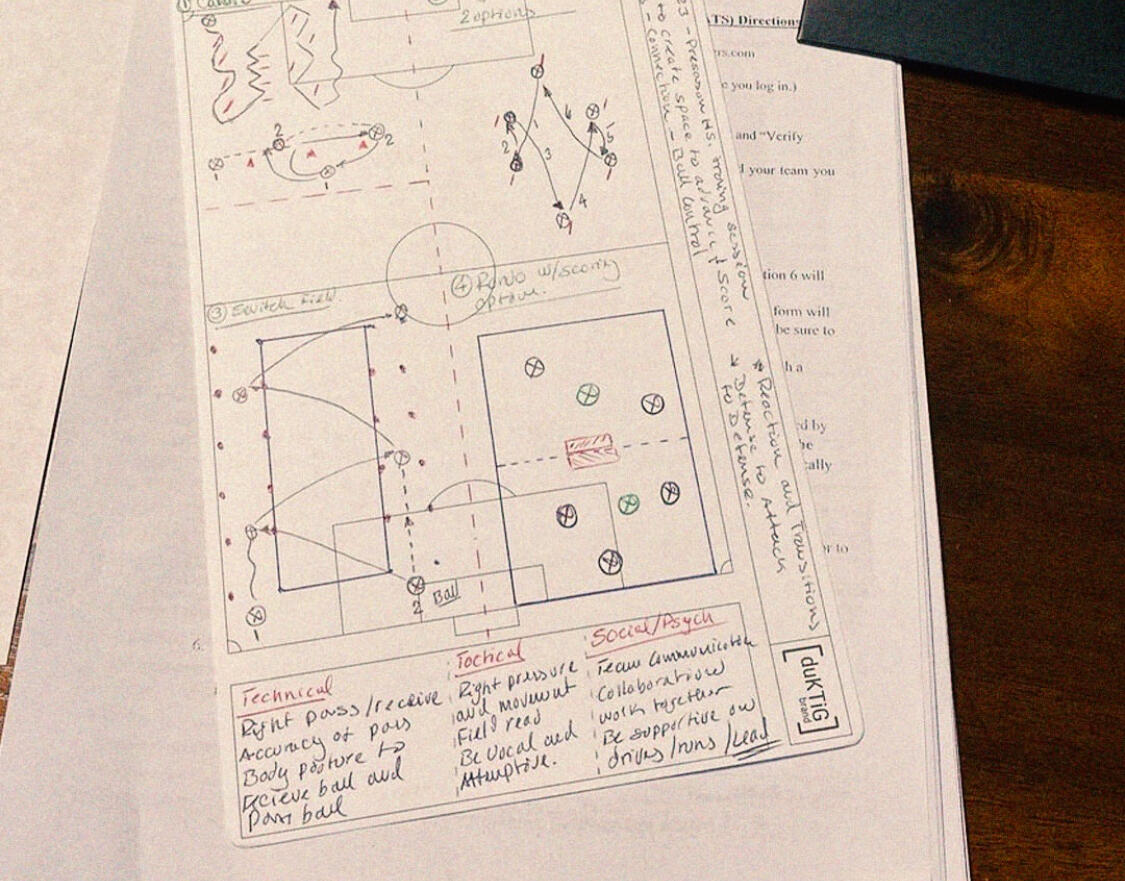 ①
2 options
2
2
1
1
1
1
2
3
4
5
6
1
③ Switch Field.
④ Rondo w/scoring
option.
1
2
Ball
Technical
Right pass/receive
Accuracy of pass
Body posture to
recieve ball and
Pass ball
Tactical
Right pressure
and movement
Field read
Be vocal and
Attemptive.
Social/Psych
Team Communication
Collaboration
work together
Be supportive on
drives/runs/Lead
23 - Preseason HS. training session
to create space to advance & Score
- Connection - Ball Control
* Reaction and Transitions
Defense to Attack
to Defense.
[duKTiG]
brand
TS) Direction
rs.com
e you log in.)
and “Verify
your team you
tion 6 will
form will
be sure to
h a
d by
be
ally
or to
6.